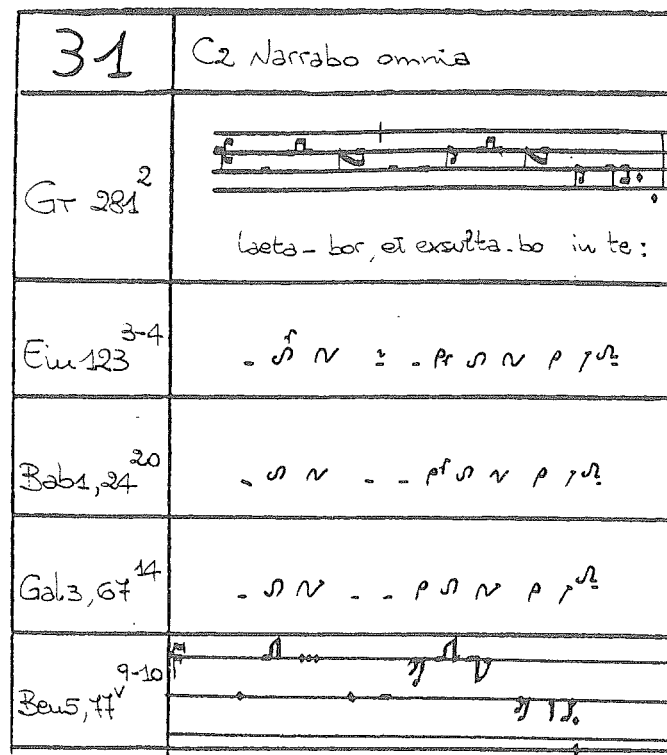 31
C2 Narrabo omnia
Gr 281²
laeta-bor, et exsulta-bo in te:
Ein 123³⁻⁴
Bab1, 24²⁰
Gal3, 67¹⁴
Ben5, 77ᵛ ⁹⁻¹⁰